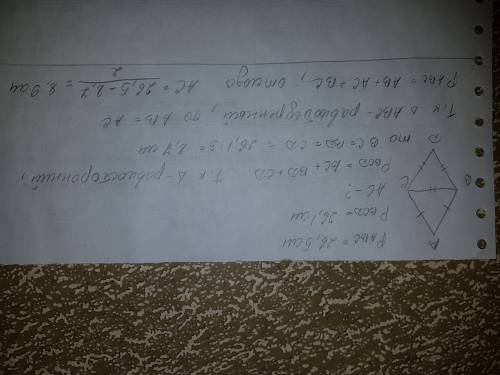 P ABC = 26,5 см
P BCD = 26,1 см
AC - ?
P BCD = BC + BD + CD Т.к Δ - равносторонний,
то BC = BD = CD = 26,1 : 3 = 8,7 см
Т.к Δ ABC - равнобедренный, то AB = AC
P ABC = AB + AC + BC, отсюда AC = 26,5 - 8,7 / 2 = 8,9 см
A
C
B
D